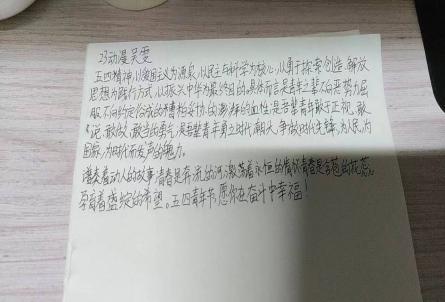 23动漫吴雯
五四精神,以爱国主义为源泉,以民主与科学为核心,以勇于探索创造、解放
思想为践行方式,以振兴中华为最终目的。具体而言是青年之辈不向恶势力屈
服、不向约定俗成的糟粕妥协的澎湃的血性;是吾辈青年敢于正视、敢
说、敢做、敢当的勇气;是吾辈青年勇立时代潮头,争做时代先锋,为人民、为
国家、为时代而发声的魄力。
谱奏着动人的故事;青春是奔流的河,激荡着永恒的情怀;青春是含苞的花蕊,
孕育着盛绽的希望。五四青年节,愿你在奋斗中幸福!